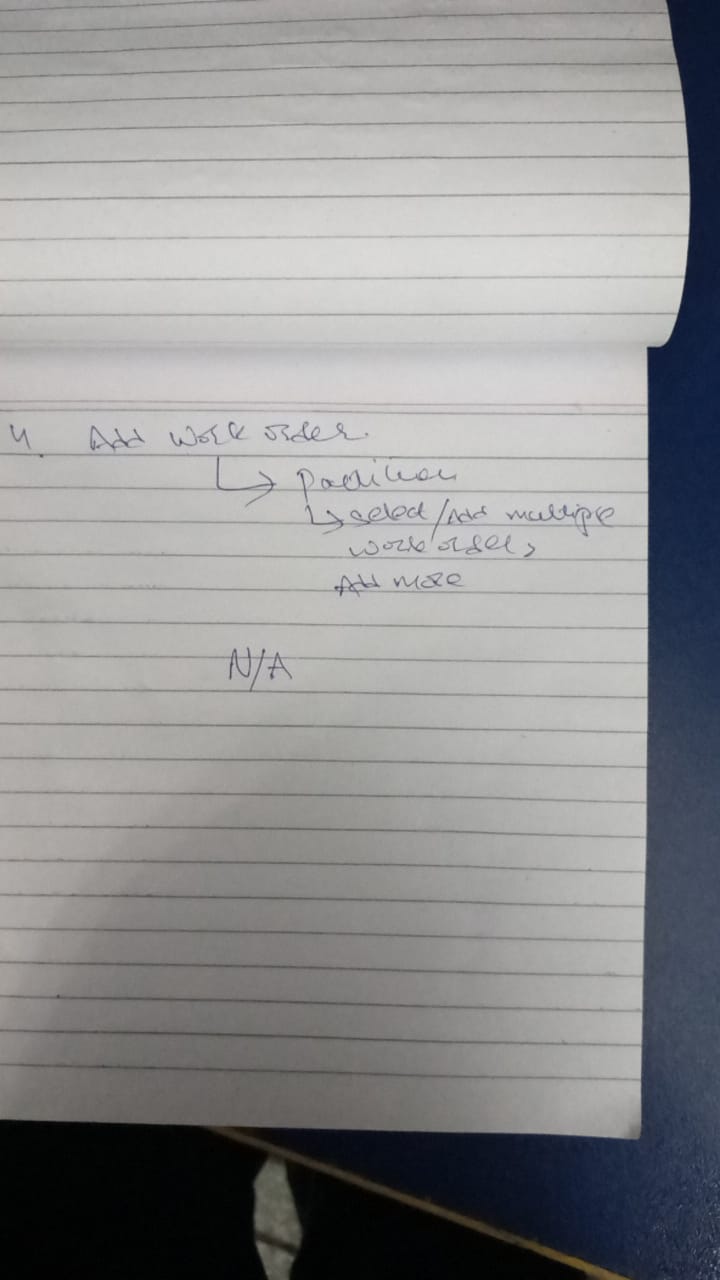 4. Add work order.
↳ Partition
↳ select/Add multiple
work orders
Add more
N/A